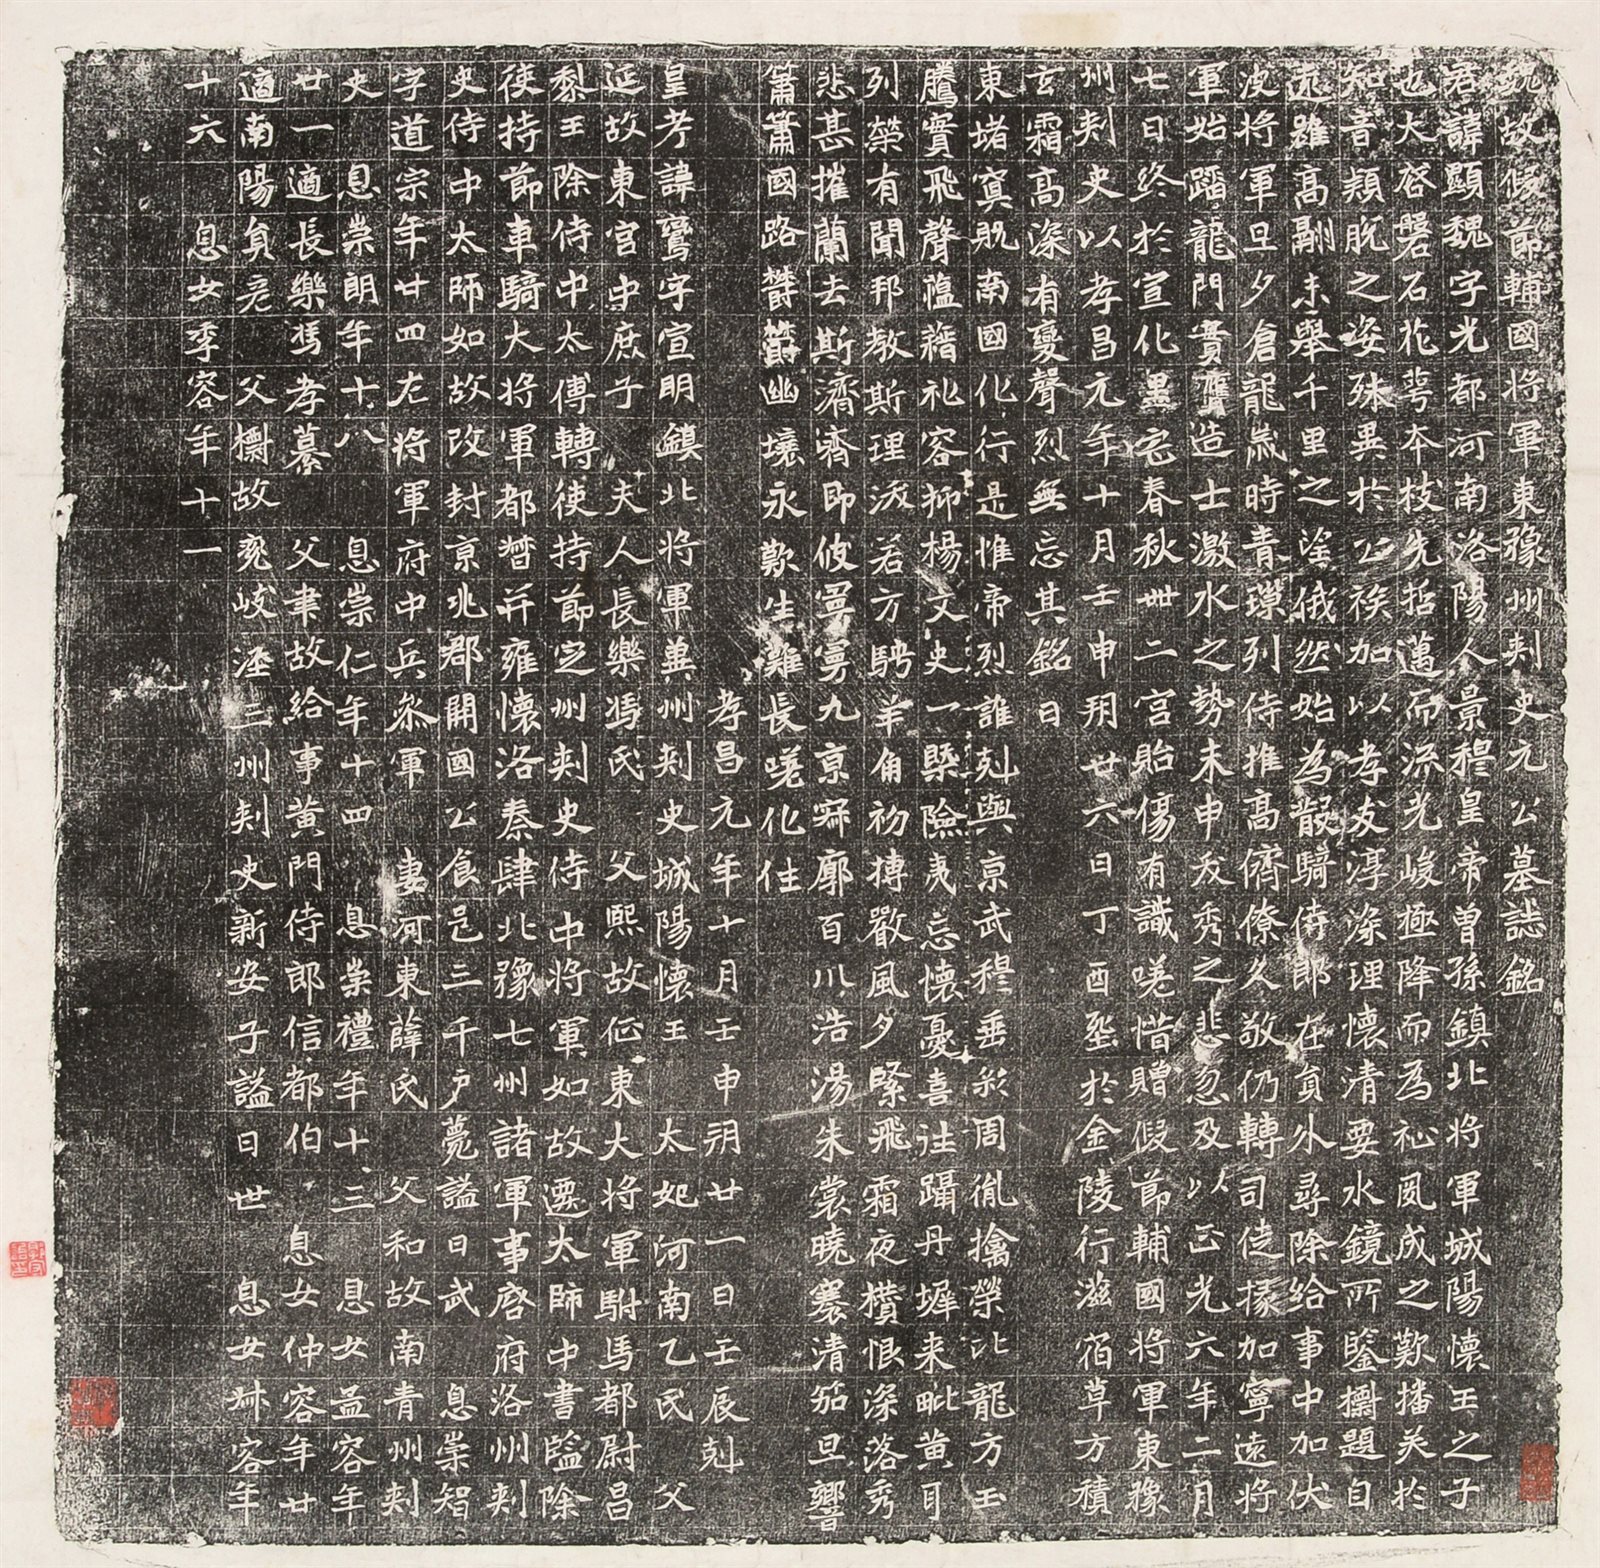 魏故假節輔國將軍東豫州刾史元公墓誌銘
君諱顯魏字光都河南洛陽人景穆皇帝曾孫鎮北將軍城陽懷王之子
也大啓磐石花萼夲枝先哲邁而流光峻極降而爲祉夙成之歎播美於
知音穎脫之姿殊異於公族加以孝友淳深理懷清要水鏡所鑒擲題自
遠雖高翮未舉千里之望俄然始為散騎侍郎在員外尋除給事中加伏
波將軍旦夕倉龍歲時青璅列侍推高儕僚久敬仍轉司徒掾加寧遠將
軍始蹈龍門賁鼖造士激水之勢未申犮秀之悲忽及以正光六年二月
七日終於宣化里宅春秋卌二二宮貽傷有識嗟惜贈假節輔國將軍東豫
州刾史以孝昌元年十月壬申朔廿六日丁酉塟於金陵行滋宿草方積
玄霜高深有變聲烈無忘其銘曰
東堵寔貺南國化行是惟帝烈誰剋與京武穆垂彩周胤擒榮比龍方玉
騰實飛聲蘊藉礼容抑楊文史一槩險夷忘懷憂喜往躡丹墀来毗黄耳
列榮有聞邦教斯理渢若方騁羊角初摶嚴風夕緊飛霜夜攢恨深落秀
悲甚摧蘭去斯濟濟即伩㝠㝠九京寂廓百川浩湯朱裳曉褰清笳旦響
簫簫國路欝欝幽壤永歎生難長嗟化往
孝昌元年十月壬申朔廿一日壬辰剋
皇考諱鸞字宣明鎮北將軍兾州刾史城陽懷王 太妃河南乙氏 父
延故東宮中庶子 夫人長樂馮氏 父熙故征東大將軍駙馬都尉昌
黎王除侍中太傅轉使持節定州刾史侍中將軍如故遷太師中書監除
使持節車騎大將軍都督并雍懷洛秦肆北豫七州諸軍事啓府洛州刾
史侍中太師如故改封京兆郡開國公食邑三千戶薨謚曰武 息崇智
字道宗年廿四左將軍府中兵參軍 妻河東薛氏 父和故南青州刾
史 息崇朗年十八 息崇仁年十四 息崇禮年十三 息女孟容年
廿一適長樂馮孝纂 父聿故給事黄門侍郎信都伯 息女仲容年廿
適南陽員彦 父擲故兖岐涇三州刾史新安子謚曰世 息女叔容年
十六 息女季容年十一